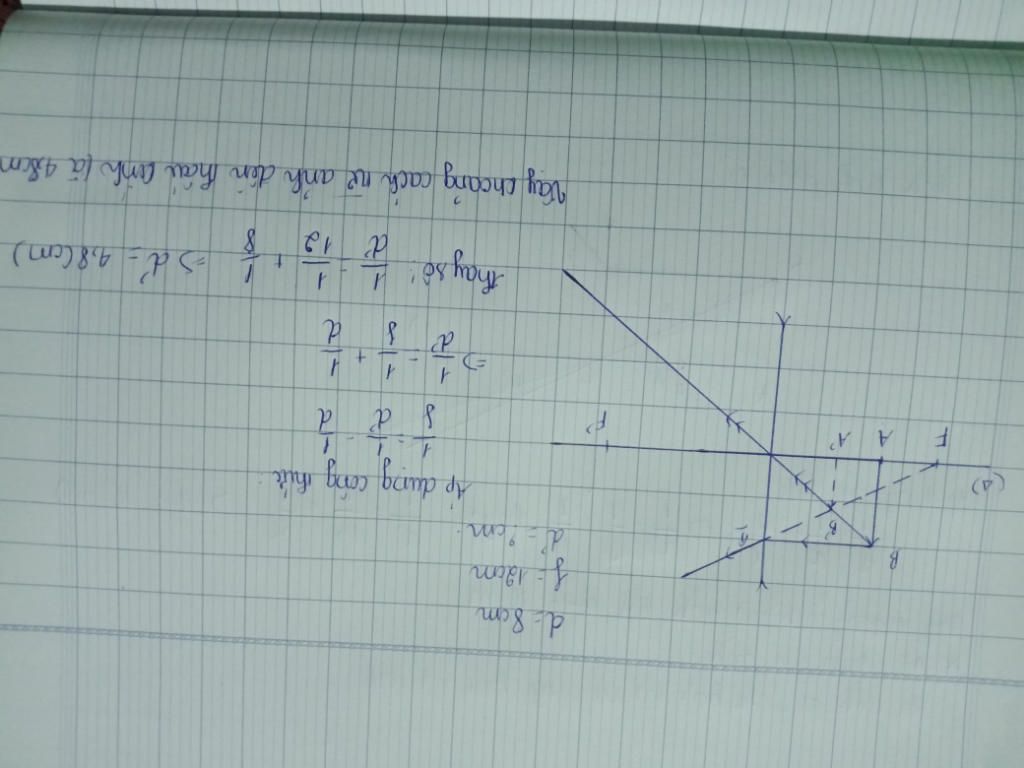 d = 8cm
f = 12cm
d' = ? cm.
Áp dụng công thức:
1/f = 1/d' - 1/d
=> 1/d' = 1/f + 1/d
Thay số: 1/d' = 1/12 + 1/8 => d' = 4,8 (cm)
Vậy khoảng cách từ ảnh đến thấu kính là 4,8cm
B
B'
I
(Δ)
F
A
A'
F'